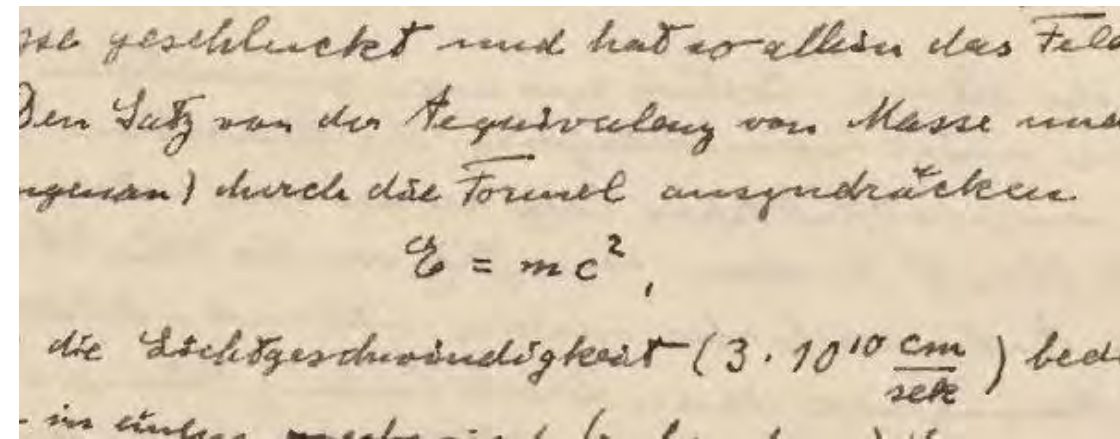 geschluckt und hat so allein das Feld
Den Satz von der Aequivalenz von Masse und
ungenau) durch die Formel auszudrücken
E = mc²,
die Lichtgeschwindigkeit (3 · 10¹⁰ cm/sek) bed
in einem